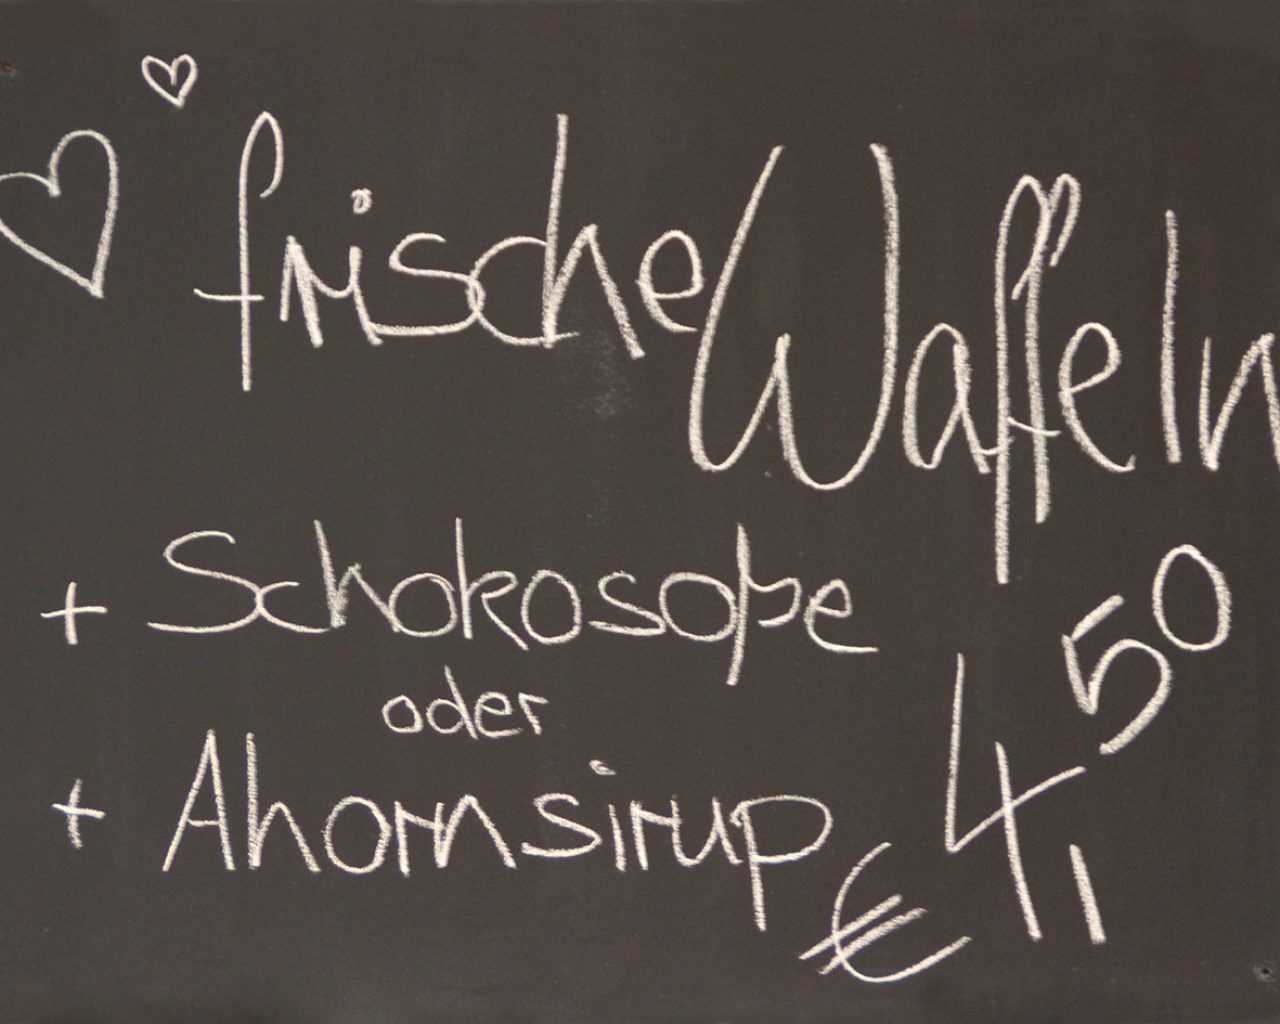 frische Waffeln
+ Schokosoße
oder
+ Ahornsirup
€ 4,50